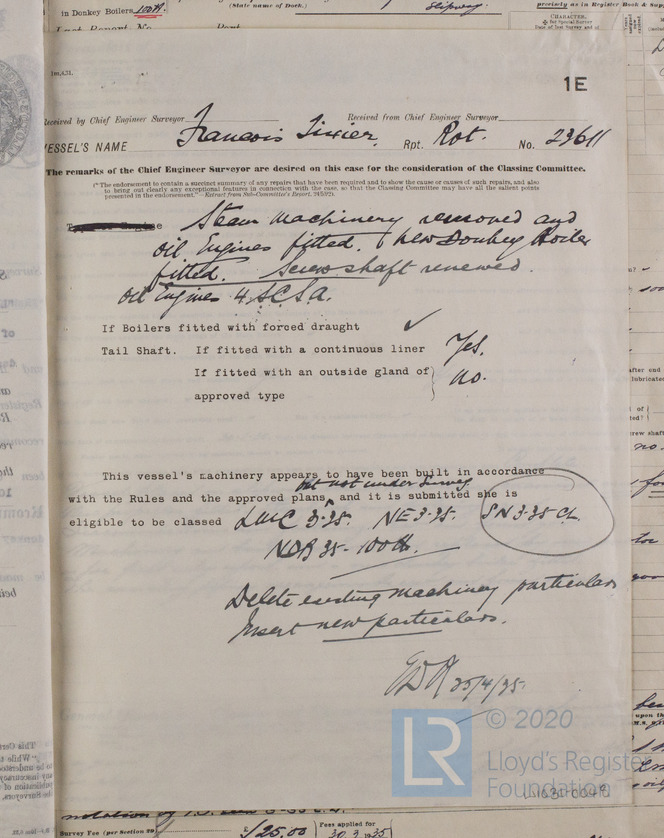 in Donkey Boilers 100 lb.
(State name of Dock.)
Slipway.
precisely as in Register Book & Sup
Last Report No.
CHARACTER.
1m,4,31.
1E
Received by Chief Engineer Surveyor
Received from Chief Engineer Surveyor
VESSEL'S NAME Francois Tixier. Rpt. Rot. No. 23611
The remarks of the Chief Engineer Surveyor are desired on this case for the consideration of the Classing Committee.
(*The endorsement to contain a succinct summary of any repairs that have been required and to show the cause or causes of such repairs, and also
to bring out clearly any exceptional features in connection with the case, so that the Classing Committee may have all the salient points
presented in the endorsement."—Extract from Sub-Committee's Report, 24/5/21).
Steam machinery removed and
oil Engines fitted. New Donkey Boiler
fitted. Screw shaft renewed.
Oil Engines 4.S.C.S.a.
If Boilers fitted with forced draught ✓
Tail Shaft. If fitted with a continuous liner Yes.
If fitted with an outside gland of } no.
approved type
This vessel's machinery appears to have been built in accordance
but not under Survey
with the Rules and the approved plans, and it is submitted she is
eligible to be classed LMC 3.35. NE 3.35. SN 3.35 CL.
NDB 35 - 100 lb.
Delete existing machinery particulars
Insert new particulars.
25/4/35.
LR
© 2020
Lloyd's Register
Foundation
Survey Fee (per Section 29) £ 125.00
Fees applied for
30.3.1935